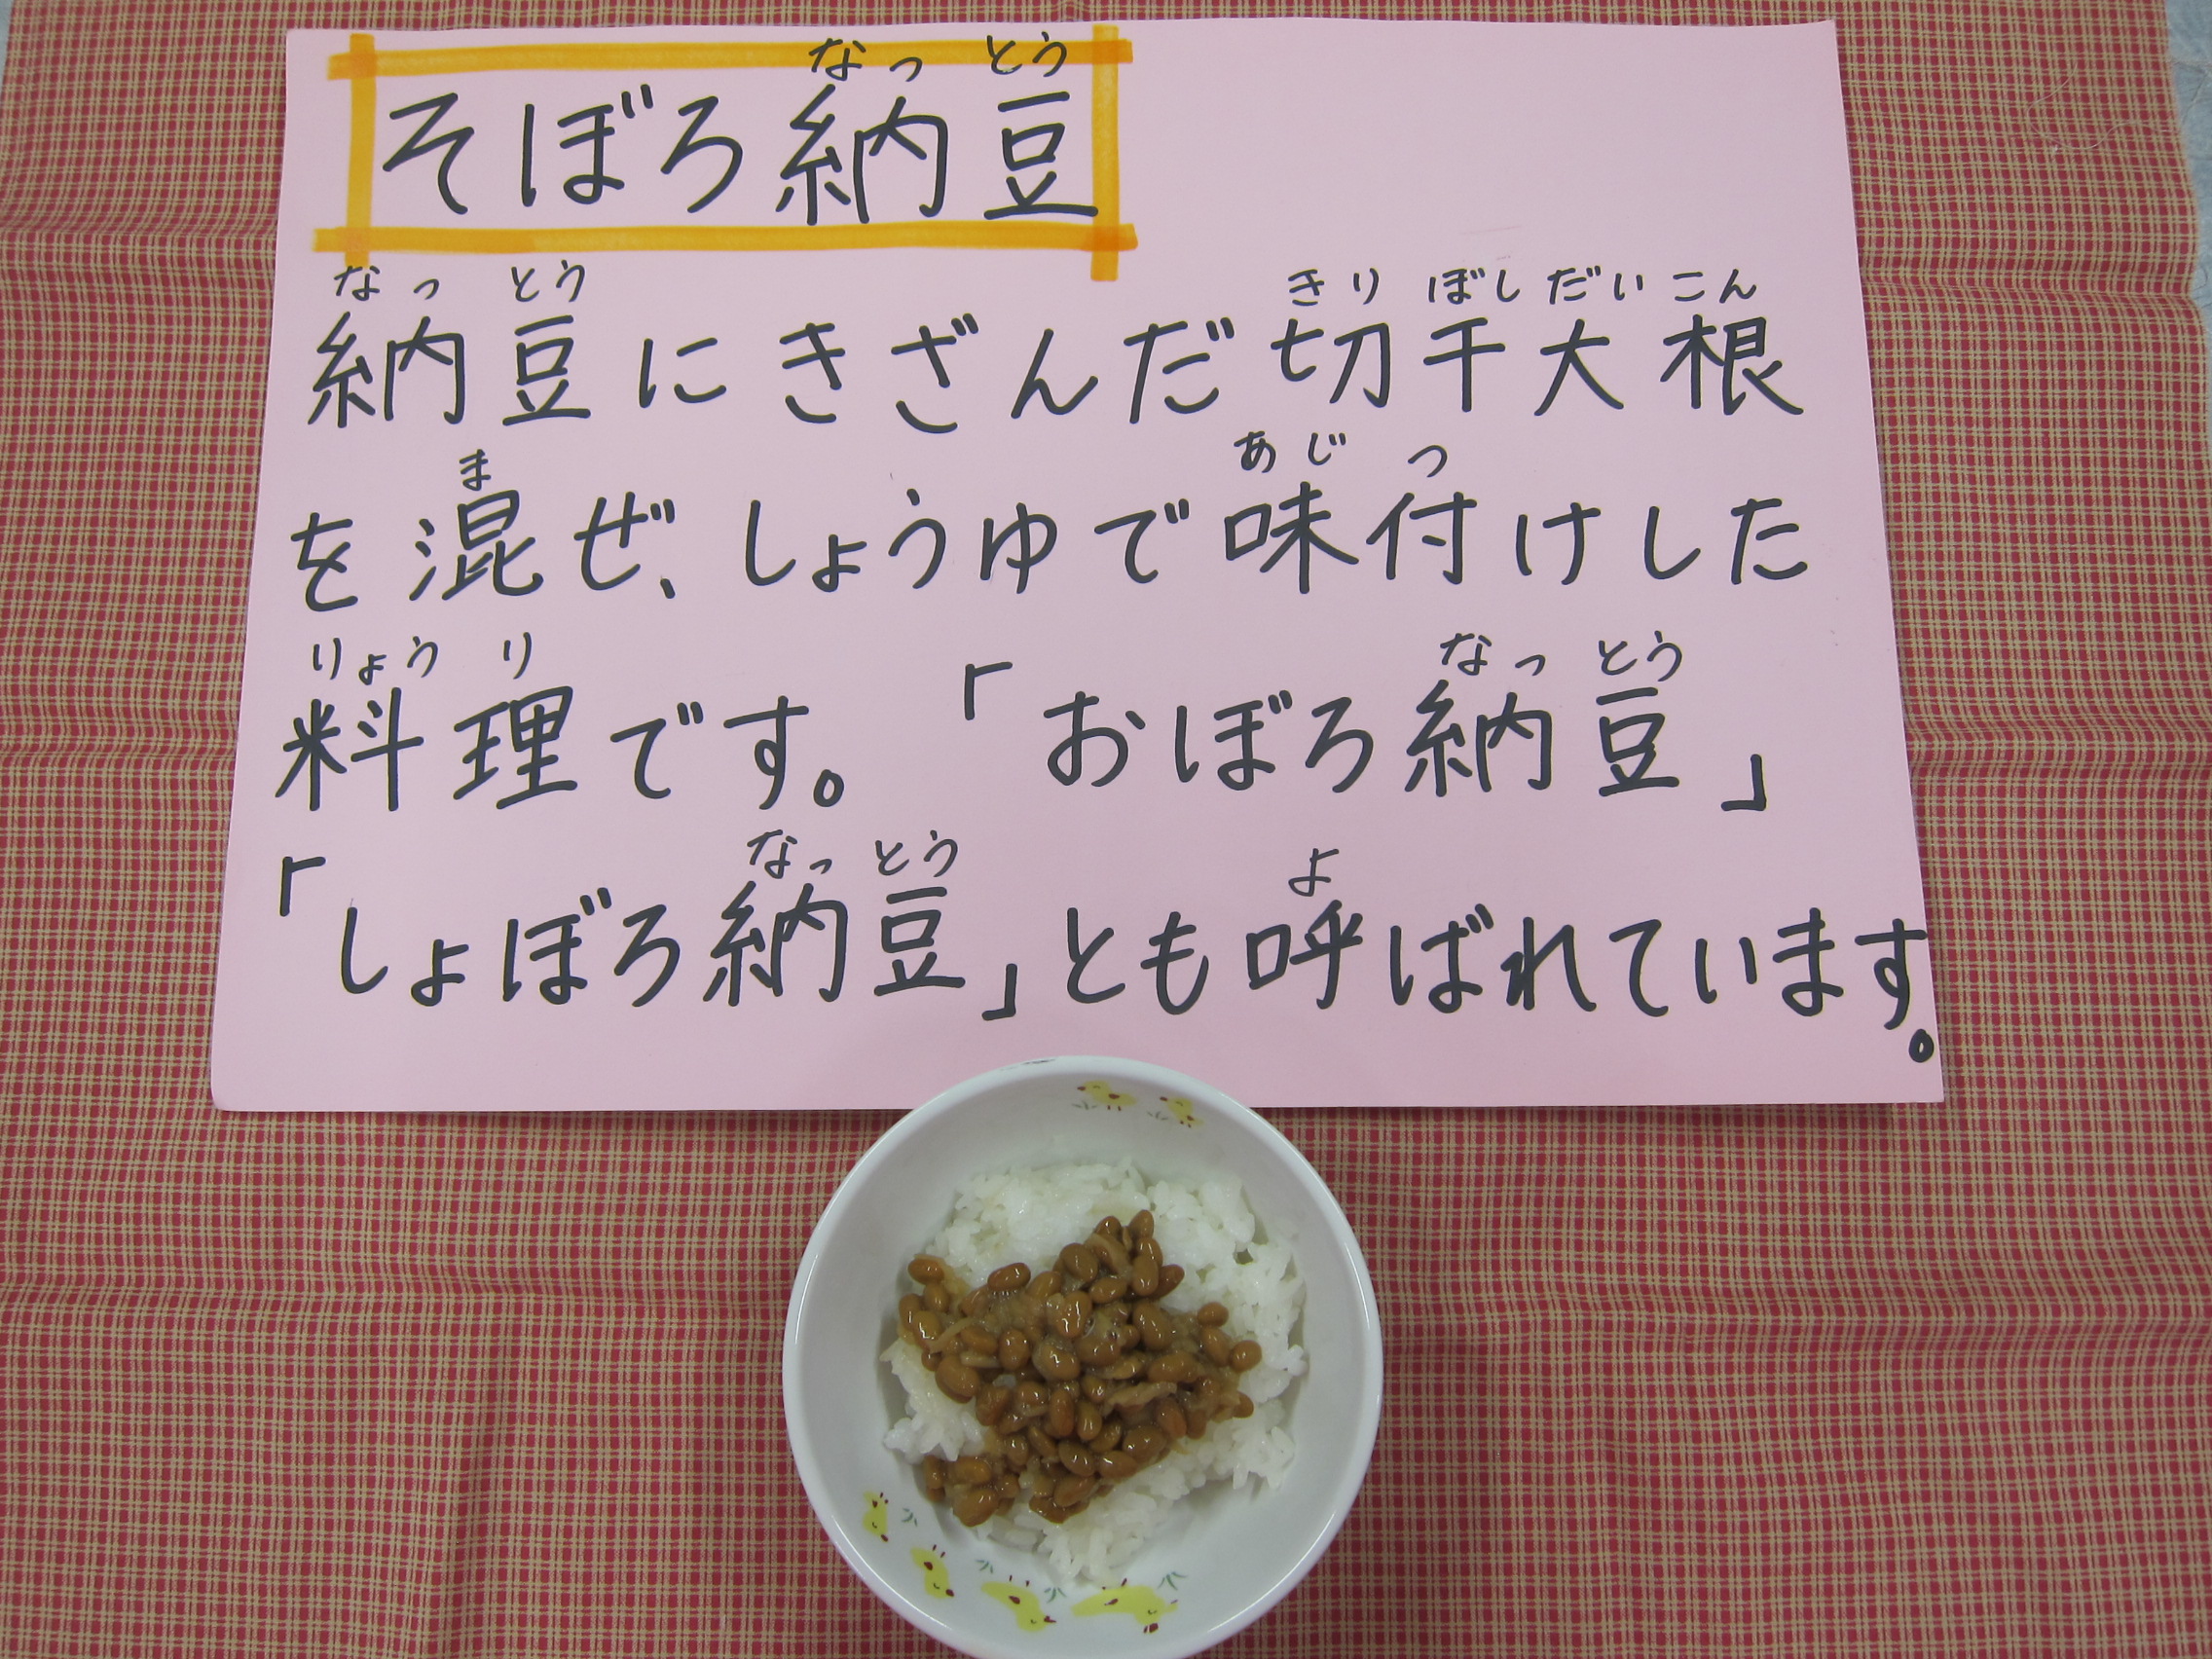 なっとう
そぼろ納豆
なっとう きりぼしだいこん
納豆にきざんだ切干大根
ま あじつ
を混ぜ、しょうゆで味付けした
りょうり なっとう
料理です。「おぼろ納豆」
なっとう よ
「しょぼろ納豆」とも呼ばれています。